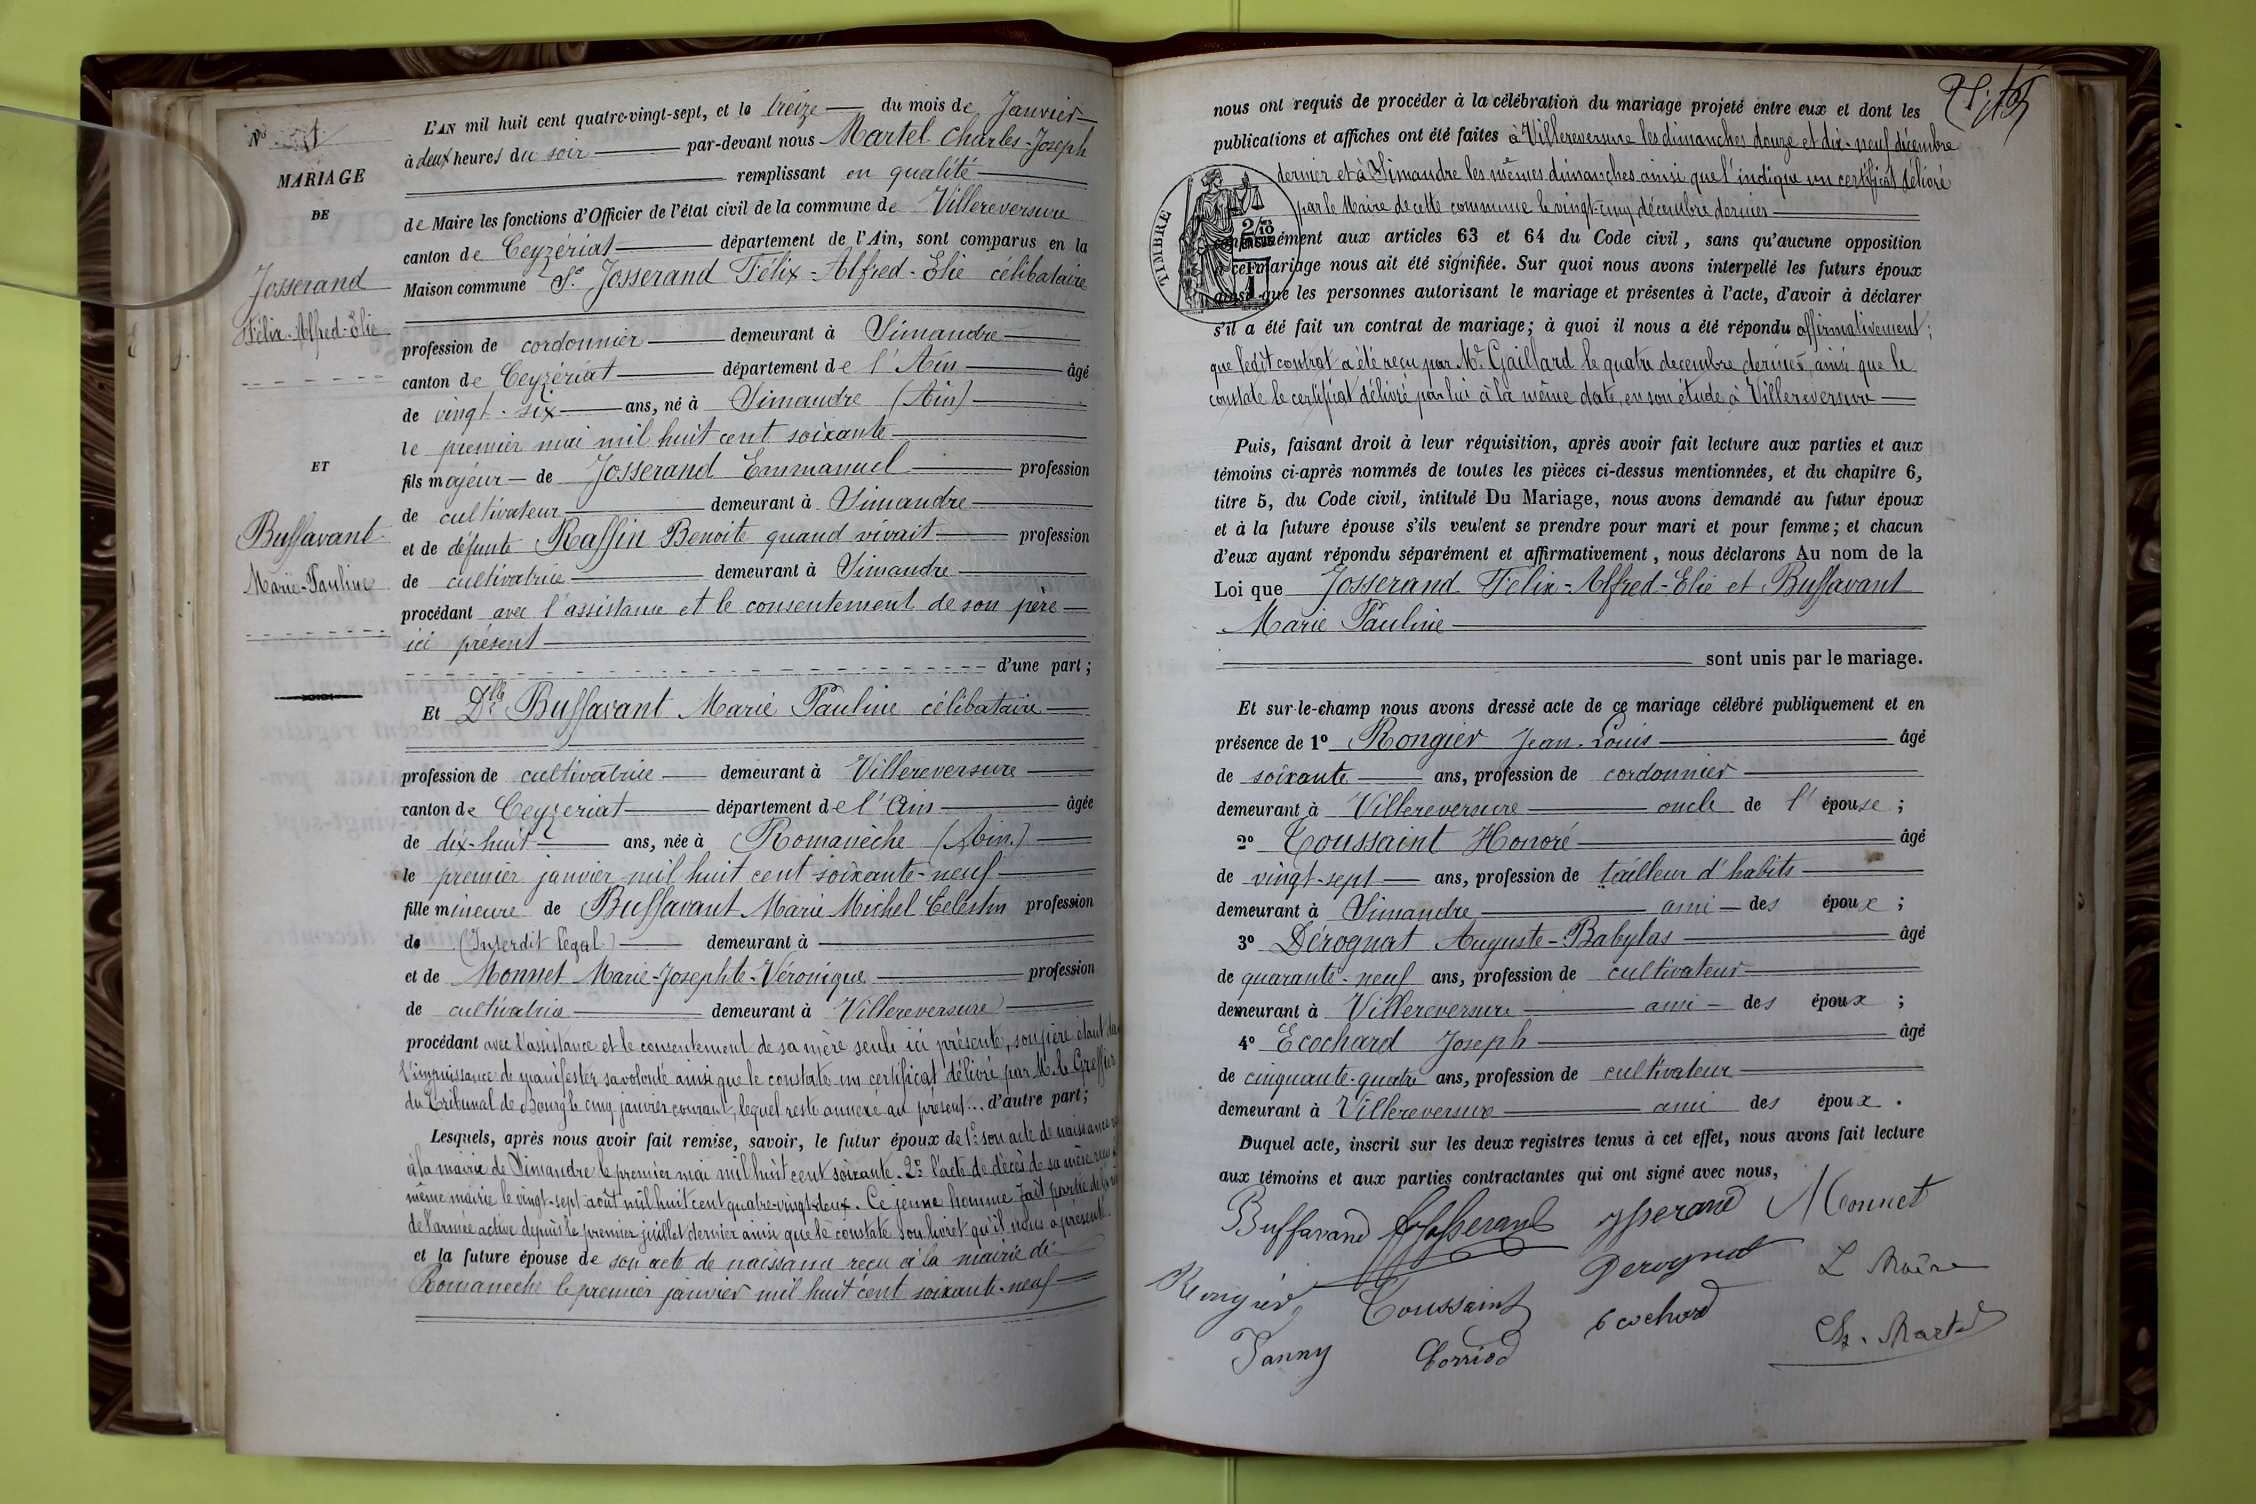 N° 1
MARIAGE
DE
Josserand
Félix-Alfred-Elie
ET
Buffavant
Marie-Pauline
L'AN mil huit cent quatre-vingt-sept, et le treize du mois de Janvier
à deux heures du soir par-devant nous Martel Charles-Joseph
remplissant en qualité
de Maire les fonctions d'Officier de l'état civil de la commune de Villereversure
canton de Ceyzériat département de l'Ain, sont comparus en la
Maison commune Sr. Josserand Félix-Alfred-Elie célibataire
profession de cordonnier demeurant à Simandre
canton de Ceyzériat département de l'Ain âgé
de vingt-six ans, né à Simandre (Ain)
le premier mai mil huit cent soixante
fils majeur de Josserand Emmanuel profession
de cultivateur demeurant à Simandre
et de défunte Raffin Benoite quand vivait profession
de cultivatrice demeurant à Simandre
procédant avec l'assistance et le consentement de son père
ici présent
d'une part;
Et Dlle Buffavant Marie Pauline célibataire
profession de cultivatrice demeurant à Villereversure
canton de Ceyzeriat département de l'Ain âgée
de dix-huit ans, née à Romanèche (Ain)
le premier janvier mil huit cent soixante-neuf
fille mineure de Buffavant Marie Michel Celestin profession
de (Interdit légal) demeurant à
et de Monnet Marie-Josephte-Véronique profession
de cultivatrice demeurant à Villereversure
procédant avec l'assistance et le consentement de sa mère seule ici présente, son père étant da
l'impuissance de manifester sa volonté ainsi que le constate un certificat délivré par M. le Greffier
du Tribunal de Bourg le cinq janvier courant, lequel reste annexé au présent... d'autre part;
Lesquels, après nous avoir fait remise, savoir, le futur époux de 1° son acte de naissance
à la mairie de Simandre le premier mai mil huit cent soixante. 2° l'acte de décès de sa mère
même mairie le vingt-sept août mil huit cent quatre-vingt-deux. Ce jeune homme fait partie de
de l'armée active depuis le premier juillet dernier ainsi que le constate son livret qu'il nous a présenté.
et la future épouse de son acte de naissance reçu à la mairie de
Romanèche le premier janvier mil huit cent soixante-neuf
nous ont requis de procéder à la célébration du mariage projeté entre eux et dont les
publications et affiches ont été faites à Villereversure les dimanches douze et dix-neuf décembre
dernier et à Simandre les mêmes dimanches ainsi que l'indique un certificat délivré
par le Maire de cette commune le vingt-cinq décembre dernier
TIMBRE
2/10
conformément aux articles 63 et 64 du Code civil, sans qu'aucune opposition
à ce mariage nous ait été signifiée. Sur quoi nous avons interpellé les futurs époux
ainsi que les personnes autorisant le mariage et présentes à l'acte, d'avoir à déclarer
s'il a été fait un contrat de mariage; à quoi il nous a été répondu affirmativement;
que ledit contrat a été reçu par Me. Gaillard le quatre decembre dernier ainsi que le
constate le certificat délivré par lui à la même date, en son étude à Villereversure
Puis, faisant droit à leur réquisition, après avoir fait lecture aux parties et aux
témoins ci-après nommés de toutes les pièces ci-dessus mentionnées, et du chapitre 6,
titre 5, du Code civil, intitulé Du Mariage, nous avons demandé au futur époux
et à la future épouse s'ils veulent se prendre pour mari et pour femme; et chacun
d'eux ayant répondu séparément et affirmativement, nous déclarons Au nom de la
Loi que Josserand Félix-Alfred-Elie et Buffavant
Marie Pauline
sont unis par le mariage.
Et sur-le-champ nous avons dressé acte de ce mariage célébré publiquement et en
présence de 1° Rongier Jean-Louis âgé
de soixante ans, profession de cordonnier
demeurant à Villereversure oncle de l'épouse;
2° Toussaint Honoré âgé
de vingt-sept ans, profession de tailleur d'habits
demeurant à Simandre ami des époux;
3° Dérognat Auguste-Babylas âgé
de quarante-neuf ans, profession de cultivateur
demeurant à Villereversure ami des époux;
4° Ecochard Joseph âgé
de cinquante-quatre ans, profession de cultivateur
demeurant à Villereversure ami des époux.
Duquel acte, inscrit sur les deux registres tenus à cet effet, nous avons fait lecture
aux témoins et aux parties contractantes qui ont signé avec nous,
Buffavand Josserand Josserand Monnet
Rongier Toussaint Derognat L Maire
Tanny Corriod Ecochard Ch. Martel